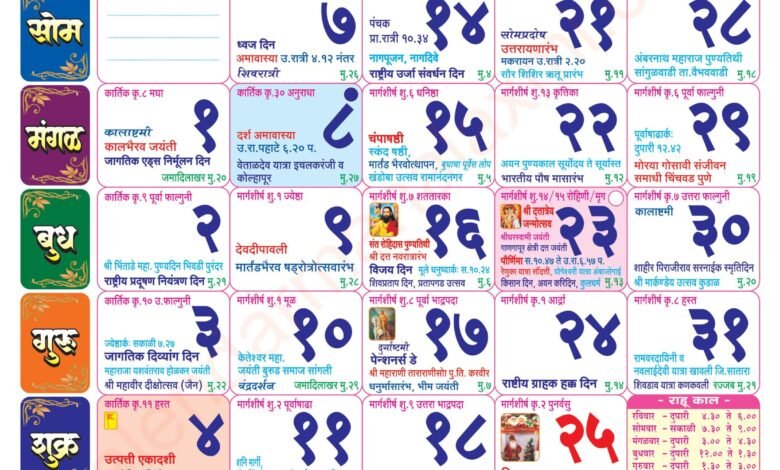 सोम
७
ध्वज दिन
अमावास्या उ.रात्री ४.१२ नंतर
शिवरात्री मु.२६
१४
पंचक
प्रा.रात्री १०.३४
नागपूजन, नागदिवे
राष्ट्रीय उर्जा संवर्धन दिन मु.४
२१
सोमप्रदोष
उत्तरायणारंभ
मकरायन उ.रात्री २.२०
सौर शिशिर ऋतू प्रारंभ मु.११
२८
अंबरनाथ महाराज पुण्यतिथी
सांगुळवाडी ता.वैभववाडी मु.१८
मंगळ
कार्तिक कृ.८ मघा
१
कालाष्टमी
कालभैरव जयंती
जागतिक एड्स निर्मूलन दिन
जमादिलाखर मु.२०
कार्तिक कृ.३० अनुराधा
८
दर्श अमावास्या
उ.रा.पहाटे ६.२० प.
वेताळदेव यात्रा इचलकरंजी व
कोल्हापूर मु.२७
मार्गशीर्ष शु.६ धनिष्ठा
१५
चंपाषष्ठी
स्कंद षष्ठी,
मार्तंड भैरवोत्थापन, बुधाचा पूर्वेस लोप
खंडोबा उत्सव रामानंदनगर मु.५
मार्गशीर्ष शु.१३ कृत्तिका
२२
अयन पुण्यकाल सूर्योदय ते सूर्यास्त
भारतीय पौष मासारंभ मु.१२
मार्गशीर्ष कृ.६ पूर्वा फाल्गुनी
२९
पूर्वाषाढार्कः
दुपारी १२.४२
मोरया गोसावी संजीवन
समाधी चिंचवड पुणे मु.१९
बुध
कार्तिक कृ.९ पूर्वा फाल्गुनी
२
श्री भिंताडे महा. पुण्यदिन भिवडी पुरंदर
राष्ट्रीय प्रदूषण नियंत्रण दिन मु.२१
मार्गशीर्ष शु.१ ज्येष्ठा
९
देवदीपावली
मार्तंडभैरव षड्रोत्रोत्सवारंभ
मु.२८
मार्गशीर्ष शु.७ शततारका
१६
संत रोहिदास पुण्यतिथी
श्री दत्त नवरात्रारंभ
विजय दिन मूले धनुष्यार्कः स.१०.२४
शिवप्रताप दिन, प्रतापगड उत्सव मु.६
मार्गशीर्ष शु.१४/१५ रोहिणी/मृग
२३
श्री दत्तात्रेय
जन्मोत्सव
श्रीधरस्वामी जयंती
गाणगापूर क्षेत्री दत्त जयंती
पौर्णिमा स.१०.४७ ते उ.रा.६.५७ प.
रेणुका यात्रा सौंदत्ती, योगेश्वरी यात्रा अंबाजोगाई
किसान दिन, अयन करिदिन, कुलधर्म मु.१३
मार्गशीर्ष कृ.७ उत्तरा फाल्गुनी
३०
कालाष्टमी
शाहीर पिराजीराव सरनाईक स्मृतिदिन
श्री मार्कण्डेय उत्सव कुडाळ मु.२०
गुरू
कार्तिक कृ.१० उ.फाल्गुनी
३
ज्येष्ठार्कः सकाळी ७.२७
जागतिक दिव्यांग दिन
महाराजा यशवंतराव होळकर जयंती
श्री महावीर दीक्षोत्सव (जैन) मु.२२
मार्गशीर्ष शु.१ मूळ
१०
केतेश्वर महा.
जयंती बुरुड समाज सांगली
चंद्रदर्शन जमादिलाखर मु.२९
मार्गशीर्ष शु.८ पूर्वा भाद्रपदा
१७
दुर्गाष्टमी
पेन्शनर्स डे
श्री महाराणी ताराराणीसो पु.ति. करवीर
धनुर्मासारंभ, भीम जयंती मु.७
मार्गशीर्ष कृ.१ आर्द्रा
२४
राष्ट्रीय ग्राहक हक्क दिन मु.१४
मार्गशीर्ष कृ.८ हस्त
३१
रामवरदायिनी व
नवलाईदेवी यात्रा खावली जि.सातारा
शिवडाव यात्रा कणकवली रज्जब मु.२१
शुक्र
कार्तिक कृ.११ हस्त
४
उत्पत्ती एकादशी
मार्गशीर्ष शु.२ पूर्वाषाढा
११
शनि मार्गी,
मार्गशीर्ष शु.९ उत्तरा भाद्रपदा
१८
मार्गशीर्ष कृ.२ पुनर्वसु
२५
- राहू काल -
रविवार - दुपारी ४.३० ते ६.००
सोमवार - सकाळी ७.३० ते ९.००
मंगळवार - दुपारी ३.०० ते ४.३०
बुधवार - दुपारी १२.०० ते १.३०
गुरुवार - दुपारी